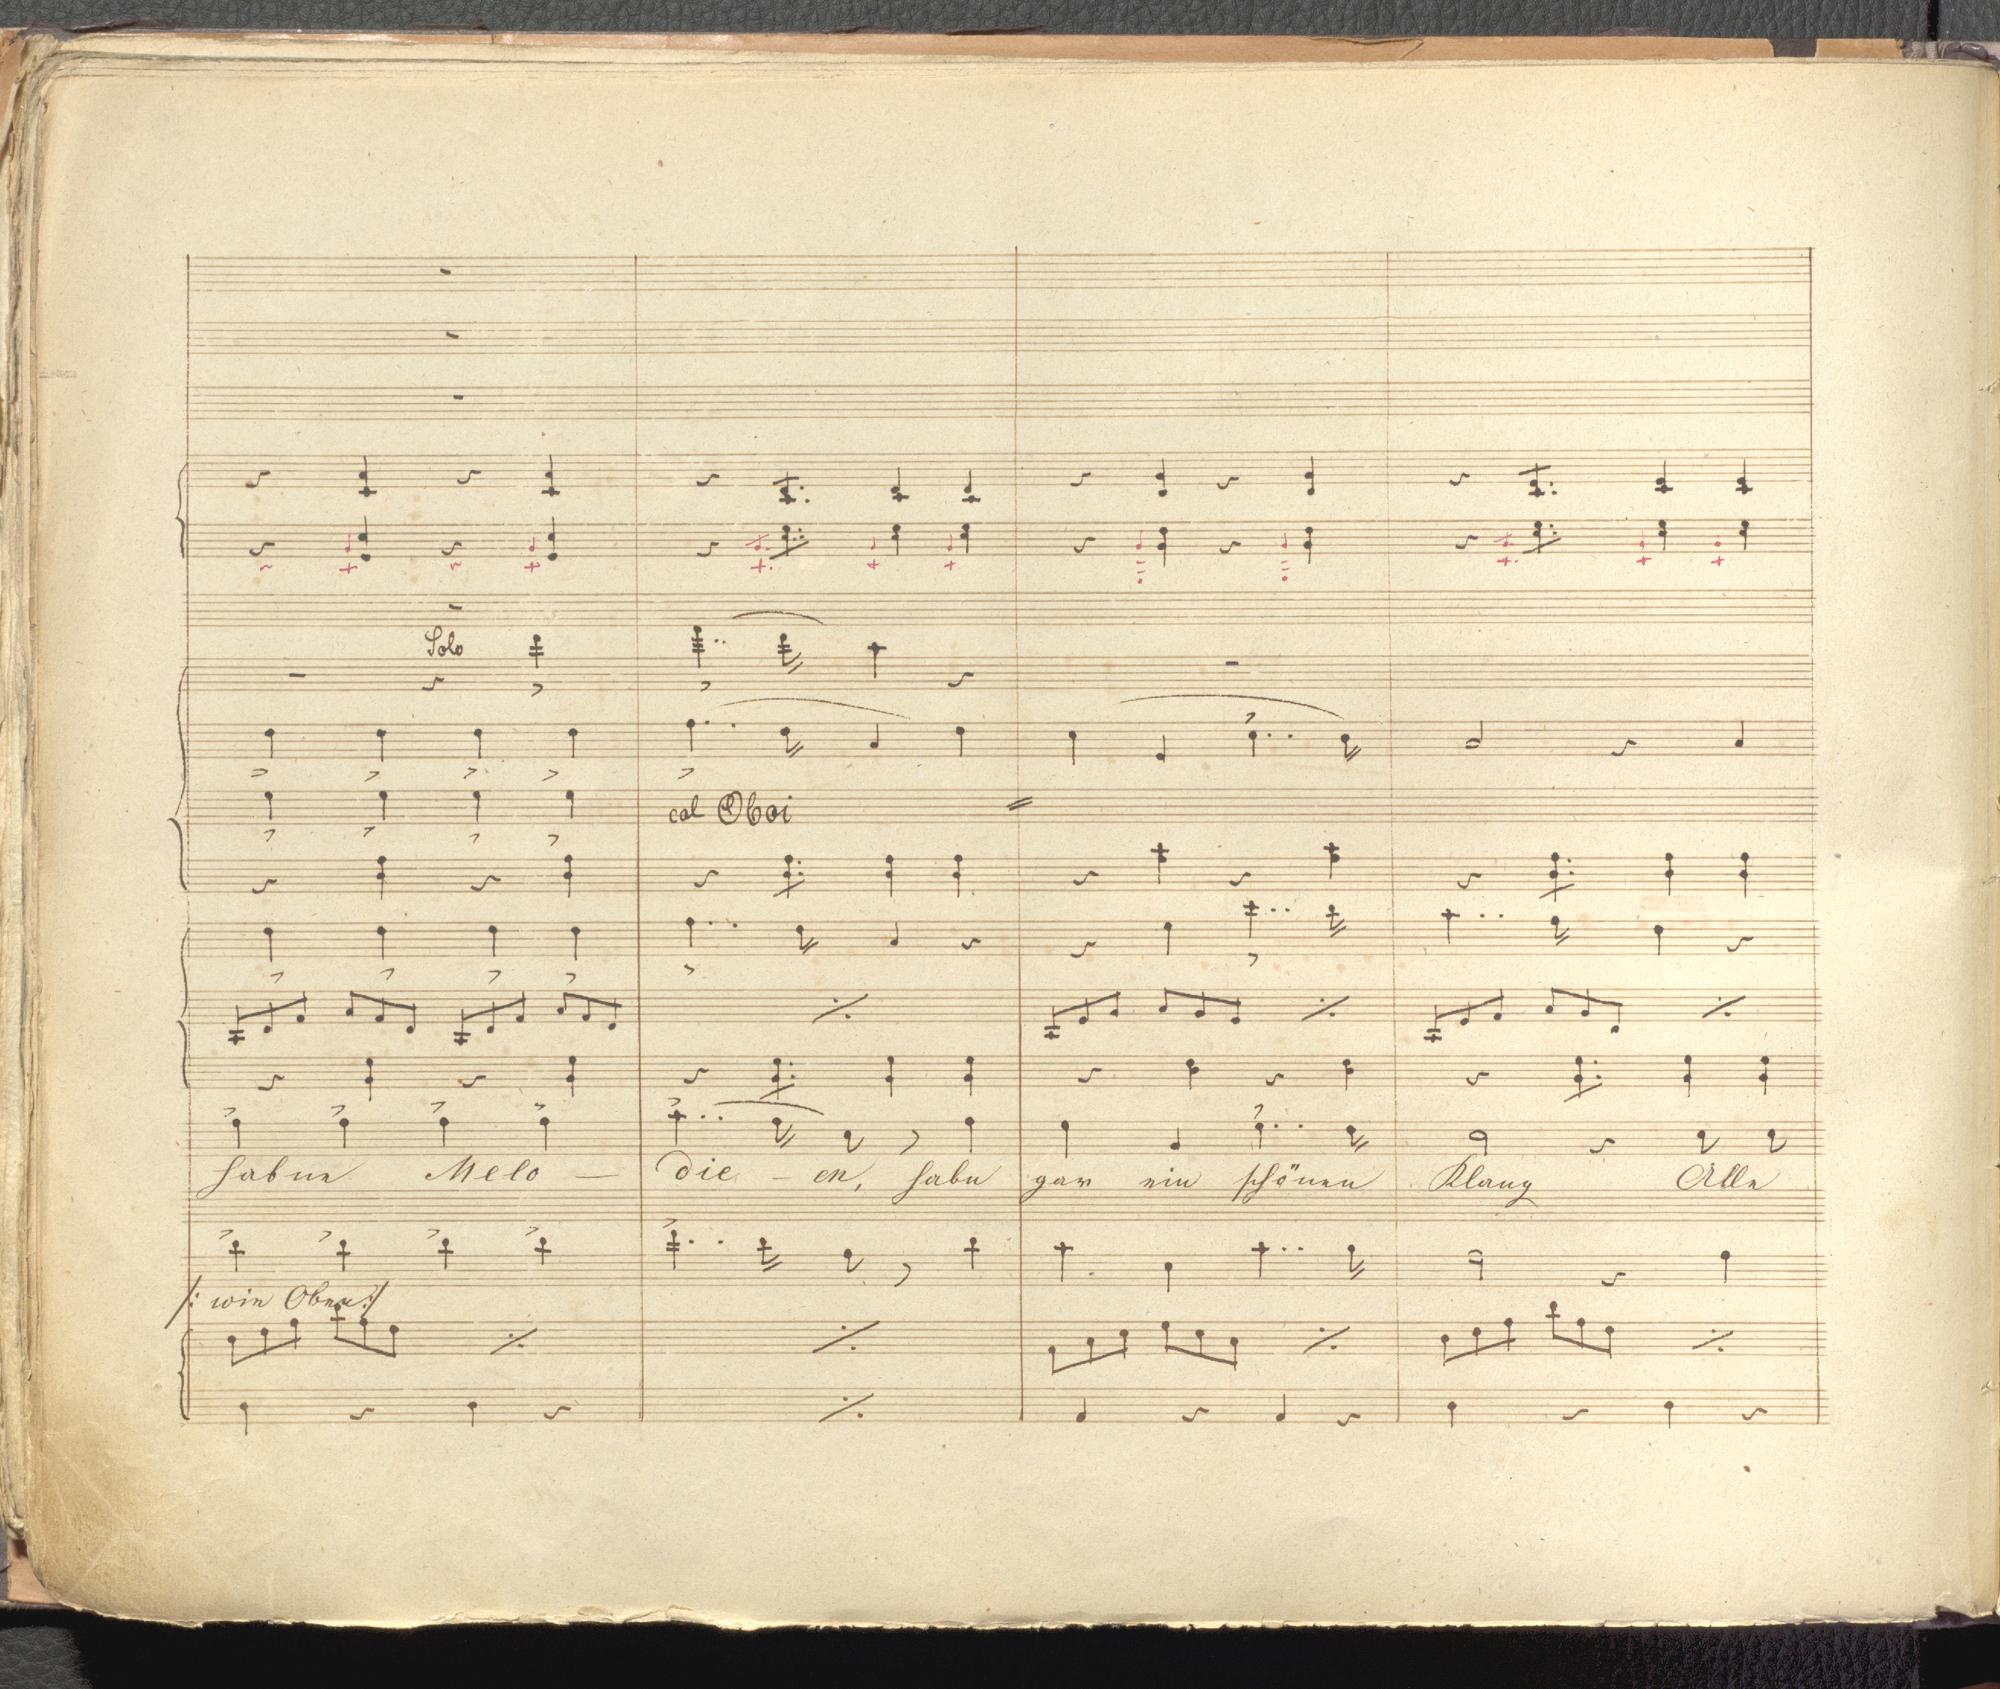 Solo
col Oboi
habne Melo - die - en, habn gar ein schönen Klang Alle
/: wie Oben :/